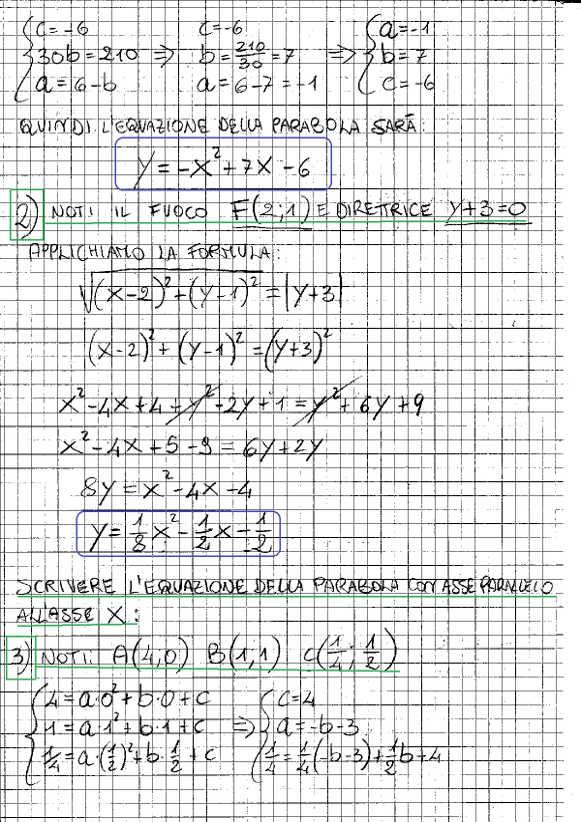 {c=-6 c=-6 {a=-1
{30b=210 ⇒ b=210/30=7 ⇒ {b=7
{a=6-b a=6-7=-1 {c=-6
QUINDI L'EQUAZIONE DELLA PARABOLA SARÀ:
y=-x²+7x-6
2) NOTI IL FUOCO F(2;1) E DIRETTRICE y+3=0
APPLICHIAMO LA FORMULA:
√((x-2)²+(y-1)²)=|y+3|
(x-2)²+(y-1)²=(y+3)²
x²-4x+4+y²-2y+1=y²+6y+9
x²-4x+5-9=6y+2y
8y=x²-4x-4
y=1/8x²-1/2x-1/2
SCRIVERE L'EQUAZIONE DELLA PARABOLA CON ASSE PARALLELO
ALL'ASSE X:
3) NOTI: A(4;0) B(1;1) C(1/4;1/2)
{4=a·0²+b·0+c {c=4
{1=a·1²+b·1+c ⇒ {a=-b-3
{1/4=a·(1/2)²+b·1/2+c {1/4=1/4(-b-3)+1/2b+4